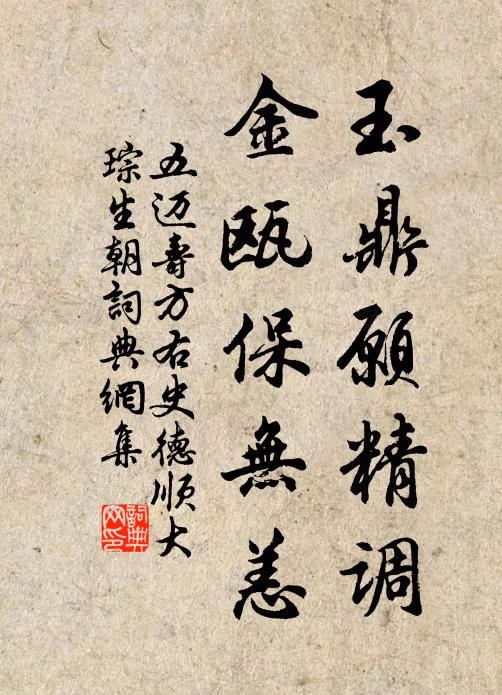 玉鼎願精调
金瓯保無恙
五迈壽方右史德順大
琮生朝詞典網集
詞典网印